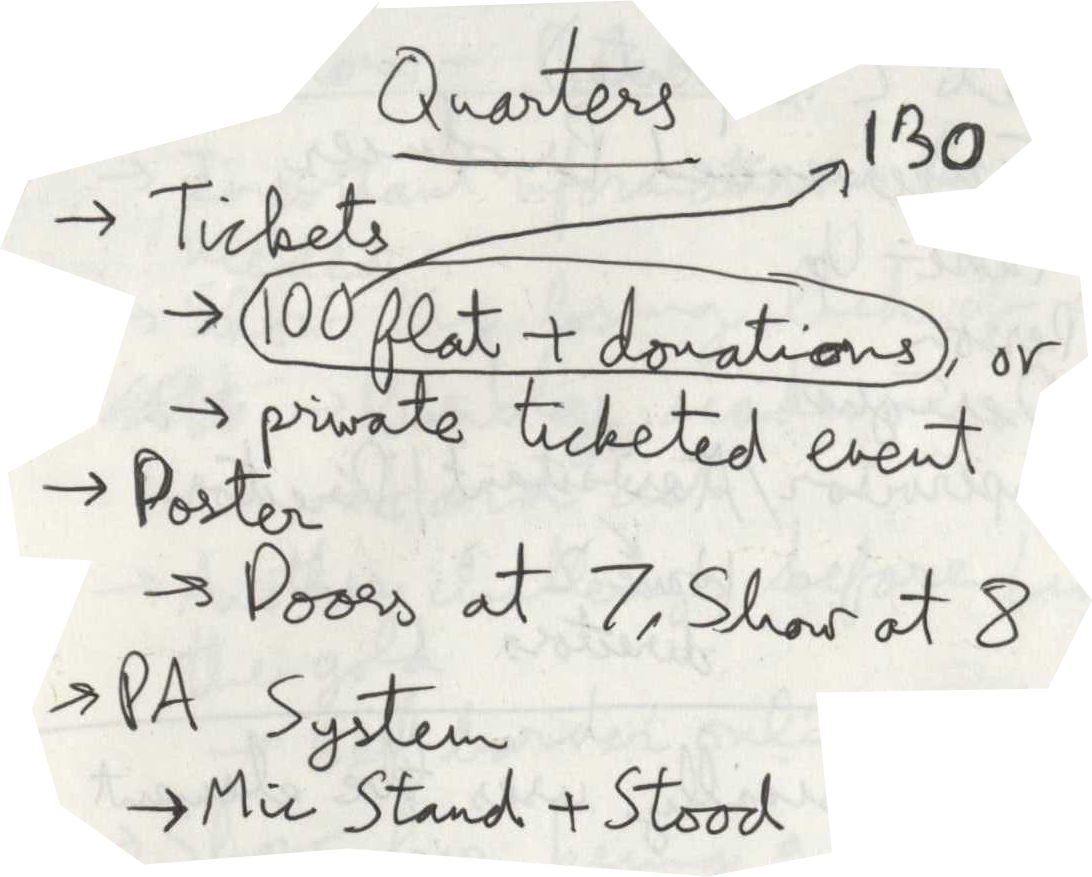 Quarters
130
→ Tickets
→ 100 flat + donations, or
→ private ticketed event
→ Poster
→ Doors at 7, Show at 8
→ PA System
→ Mic Stand + Stood